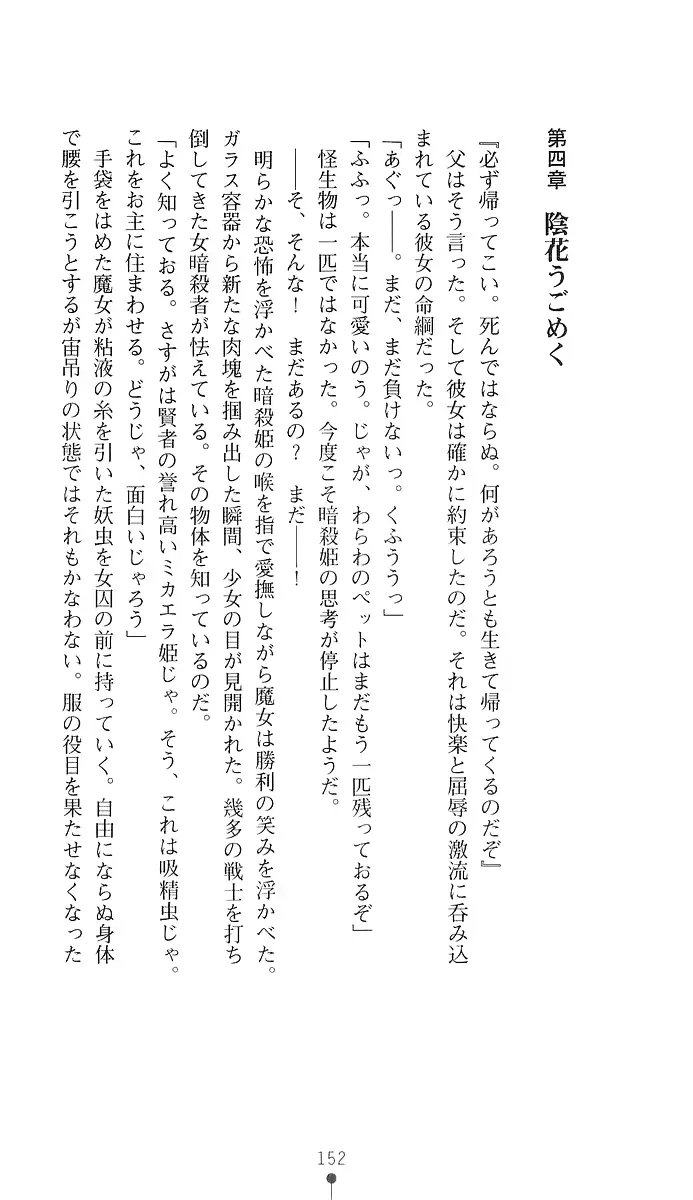 第四章　陰花うごめく
『必ず帰ってこい。死んではならぬ。何があろうとも生きて帰ってくるのだぞ』
父はそう言った。そして彼女は確かに約束したのだ。それは快楽と屈辱の激流に呑み込
まれている彼女の命綱だった。
「あぐっ――。まだ、まだ負けないっ。くふううっ」
「ふふっ。本当に可愛いのう。じゃが、わらわのペットはまだもう一匹残っておるぞ」
怪生物は一匹ではなかった。今度こそ暗殺姫の思考が停止したようだ。
――そ、そんな！　まだあるの？　まだ――！
明らかな恐怖を浮かべた暗殺姫の喉を指で愛撫しながら魔女は勝利の笑みを浮かべた。
ガラス容器から新たな肉塊を掴み出した瞬間、少女の目が見開かれた。幾多の戦士を打ち
倒してきた女暗殺者が怯えている。その物体を知っているのだ。
「よく知っておる。さすがは賢者の誉れ高いミカエラ姫じゃ。そう、これは吸精虫じゃ。
これをお主に住まわせる。どうじゃ、面白いじゃろう」
手袋をはめた魔女が粘液の糸を引いた妖虫を女囚の前に持っていく。自由にならぬ身体
で腰を引こうとするが宙吊りの状態ではそれもかなわない。服の役目を果たせなくなった
152